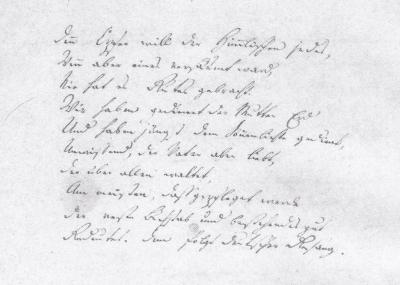 Denn Opfer will der Himmlischen jedes,
Wenn aber eines versäumt ward,
Nie hat es Gutes gebracht.
Wir haben gedienet der Mutter Erd
Und haben jüngst dem Sonnenlichte gedient,
Unwissend, der Vater aber liebt,
der über allen waltet
Am meisten, daß gepfleget werde
der veste Buchstab und bestehendes gut
Gedeutet. dem folgt deutscher Gesang.